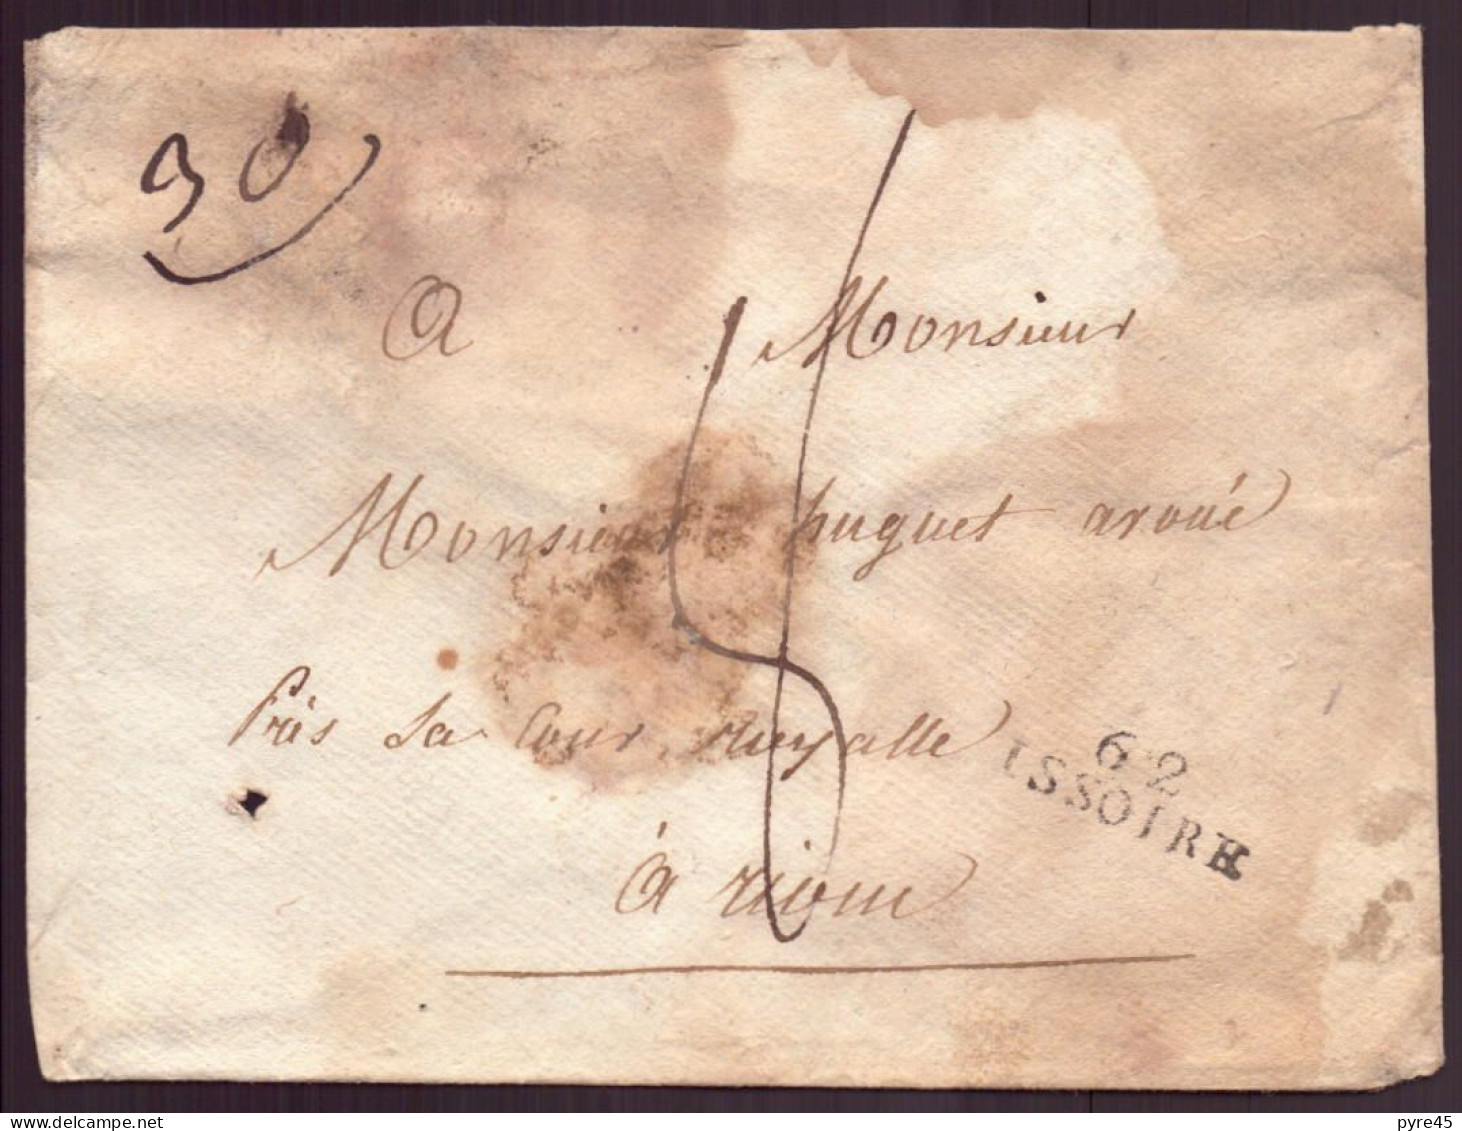 30
A Monsieur
Monsieur huguet avoué
Près la Cour royalle
62
ISSOIRE
à riom
8
delcampe.net
pyre45